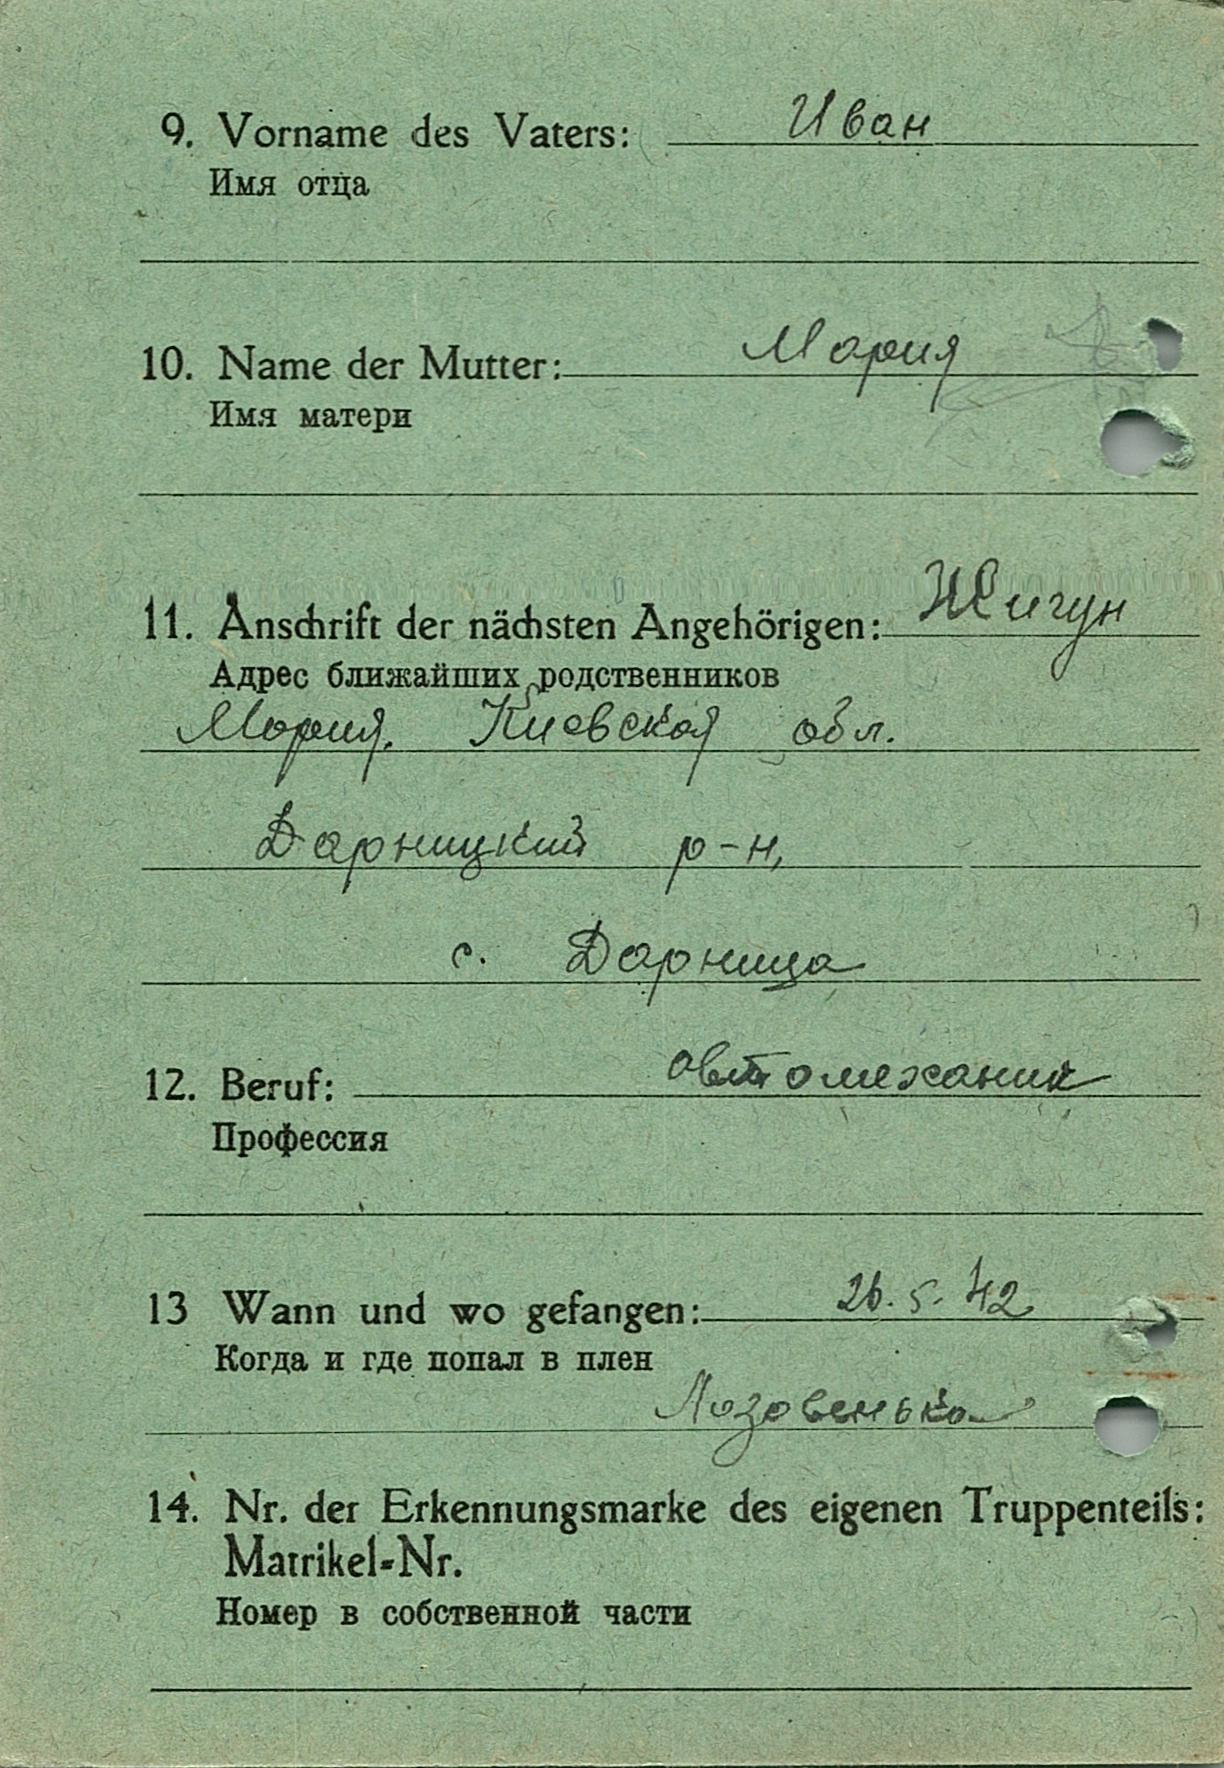 9. Vorname des Vaters: Иван
Имя отца
10. Name der Mutter: Мария
Имя матери
11. Anschrift der nächsten Angehörigen: Жигун
Адрес ближайших родственников
Мария. Киевская обл.
Дарницкий р-н,
с. Дарница
12. Beruf: автомеханик
Профессия
13 Wann und wo gefangen: 26.5.42
Когда и где попал в плен
Лозовенька
14. Nr. der Erkennungsmarke des eigenen Truppenteils:
Matrikel-Nr.
Номер в собственной части